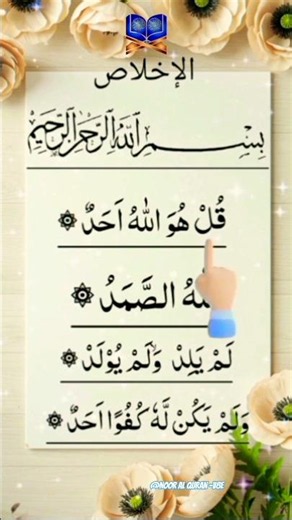 الإخلاص
بِسْمِ ٱللَّهِ ٱلرَّحْمَٰنِ ٱلرَّحِيمِ
قُلْ هُوَ اللّٰهُ اَحَدٌ ۞
الصَّمَدُ ۞
لَمْ يَلِدْ وَلَمْ يُوْلَدْ ۞
وَلَمْ يَكُنْ لَّهٗ كُفُوًا اَحَدٌ ۞
@DNOOR AL QURAN-BBE